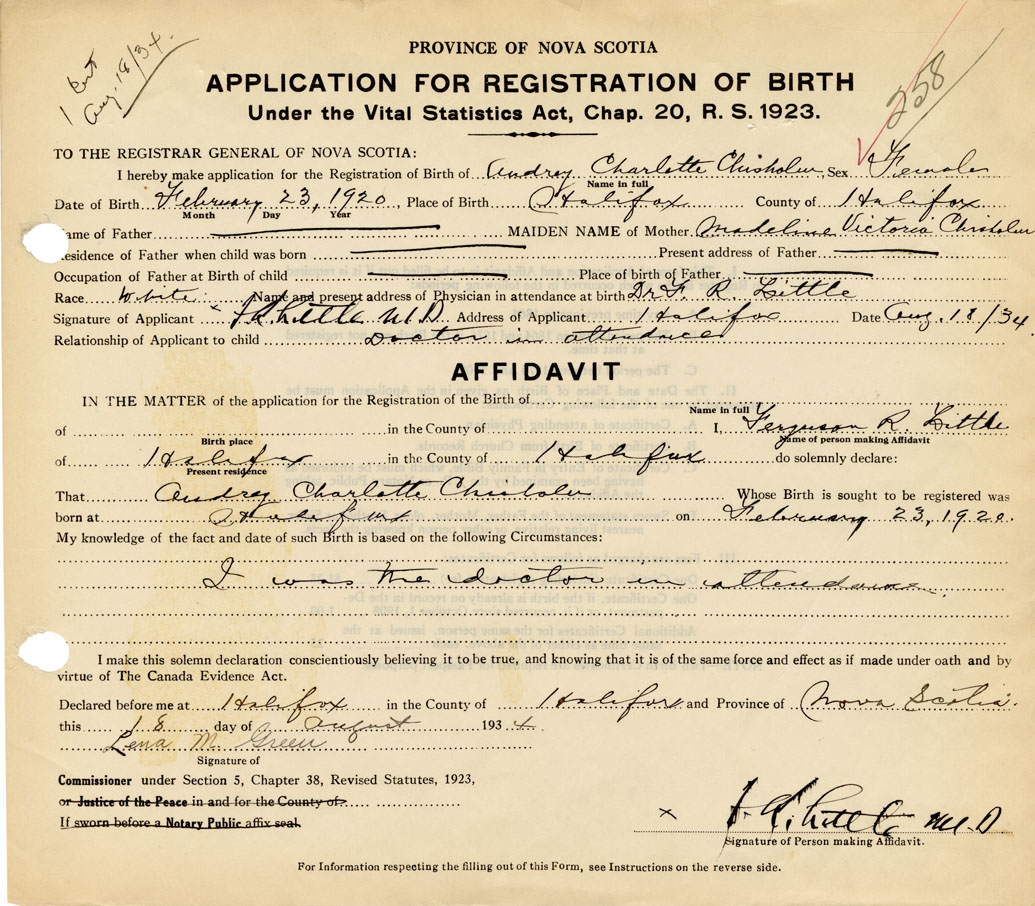 1 Cert
Aug. 18/34.
258
PROVINCE OF NOVA SCOTIA
APPLICATION FOR REGISTRATION OF BIRTH
Under the Vital Statistics Act, Chap. 20, R. S. 1923.
TO THE REGISTRAR GENERAL OF NOVA SCOTIA:
I hereby make application for the Registration of Birth of Audrey Charlotte Chisholm, Sex Female
Name in full
Date of Birth February 23, 1920, Place of Birth Halifax County of Halifax
Month Day Year
Name of Father MAIDEN NAME of Mother Madeline Victoria Chisholm
Residence of Father when child was born Present address of Father
Occupation of Father at Birth of child Place of birth of Father
Race White Name and present address of Physician in attendance at birth Dr F. R. Little
Signature of Applicant x F R Little M.D. Address of Applicant Halifax Date Aug. 18/34.
Relationship of Applicant to child Doctor in attendance
AFFIDAVIT
IN THE MATTER of the application for the Registration of the Birth of
Name in full
of in the County of I, Ferguson R. Little
Birth place Name of person making Affidavit
of Halifax in the County of Halifax do solemnly declare:
Present residence
That Audrey Charlotte Chisholm Whose Birth is sought to be registered was
born at Halifax on February 23, 1920.
My knowledge of the fact and date of such Birth is based on the following Circumstances:
I was the doctor in attendance.
I make this solemn declaration conscientiously believing it to be true, and knowing that it is of the same force and effect as if made under oath and by
virtue of The Canada Evidence Act.
Declared before me at Halifax in the County of Halifax and Province of Nova Scotia.
this 18 day of August 1934.
Lena M. Green
Signature of
Commissioner under Section 5, Chapter 38, Revised Statutes, 1923,
or Justice of the Peace in and for the County of
If sworn before a Notary Public affix seal.
x F. R. Little M.D.
Signature of Person making Affidavit.
For Information respecting the filling out of this Form, see Instructions on the reverse side.